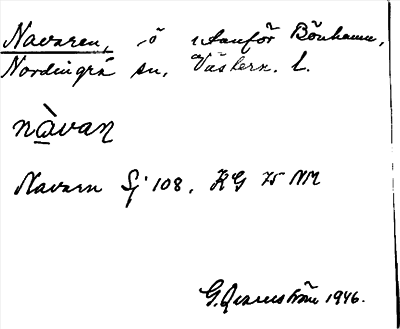 Navaren, ö utanför Bönhamn,
Nordingrå sn, Västern. l.
nàvan
Navarn Sj 108, KG 75 NM
G. 1946.